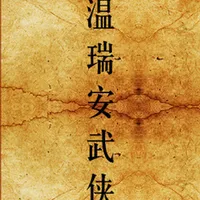 温瑞安武侠